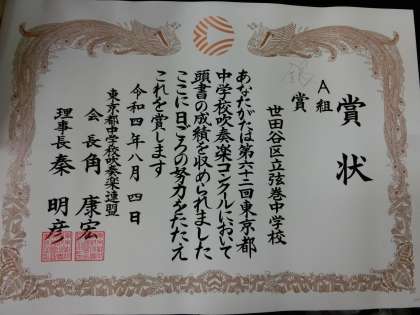 賞状
A組
銀賞
世田谷区立弦巻中学校
あなたがたは第六十二回東京都
中学校吹奏楽コンクールにおいて
頭書の成績を収められました
ここに日ごろの努力をたたえ
これを賞します
令和四年八月四日
東京都中学校吹奏楽連盟
会長 角康宏
理事長 秦明彦